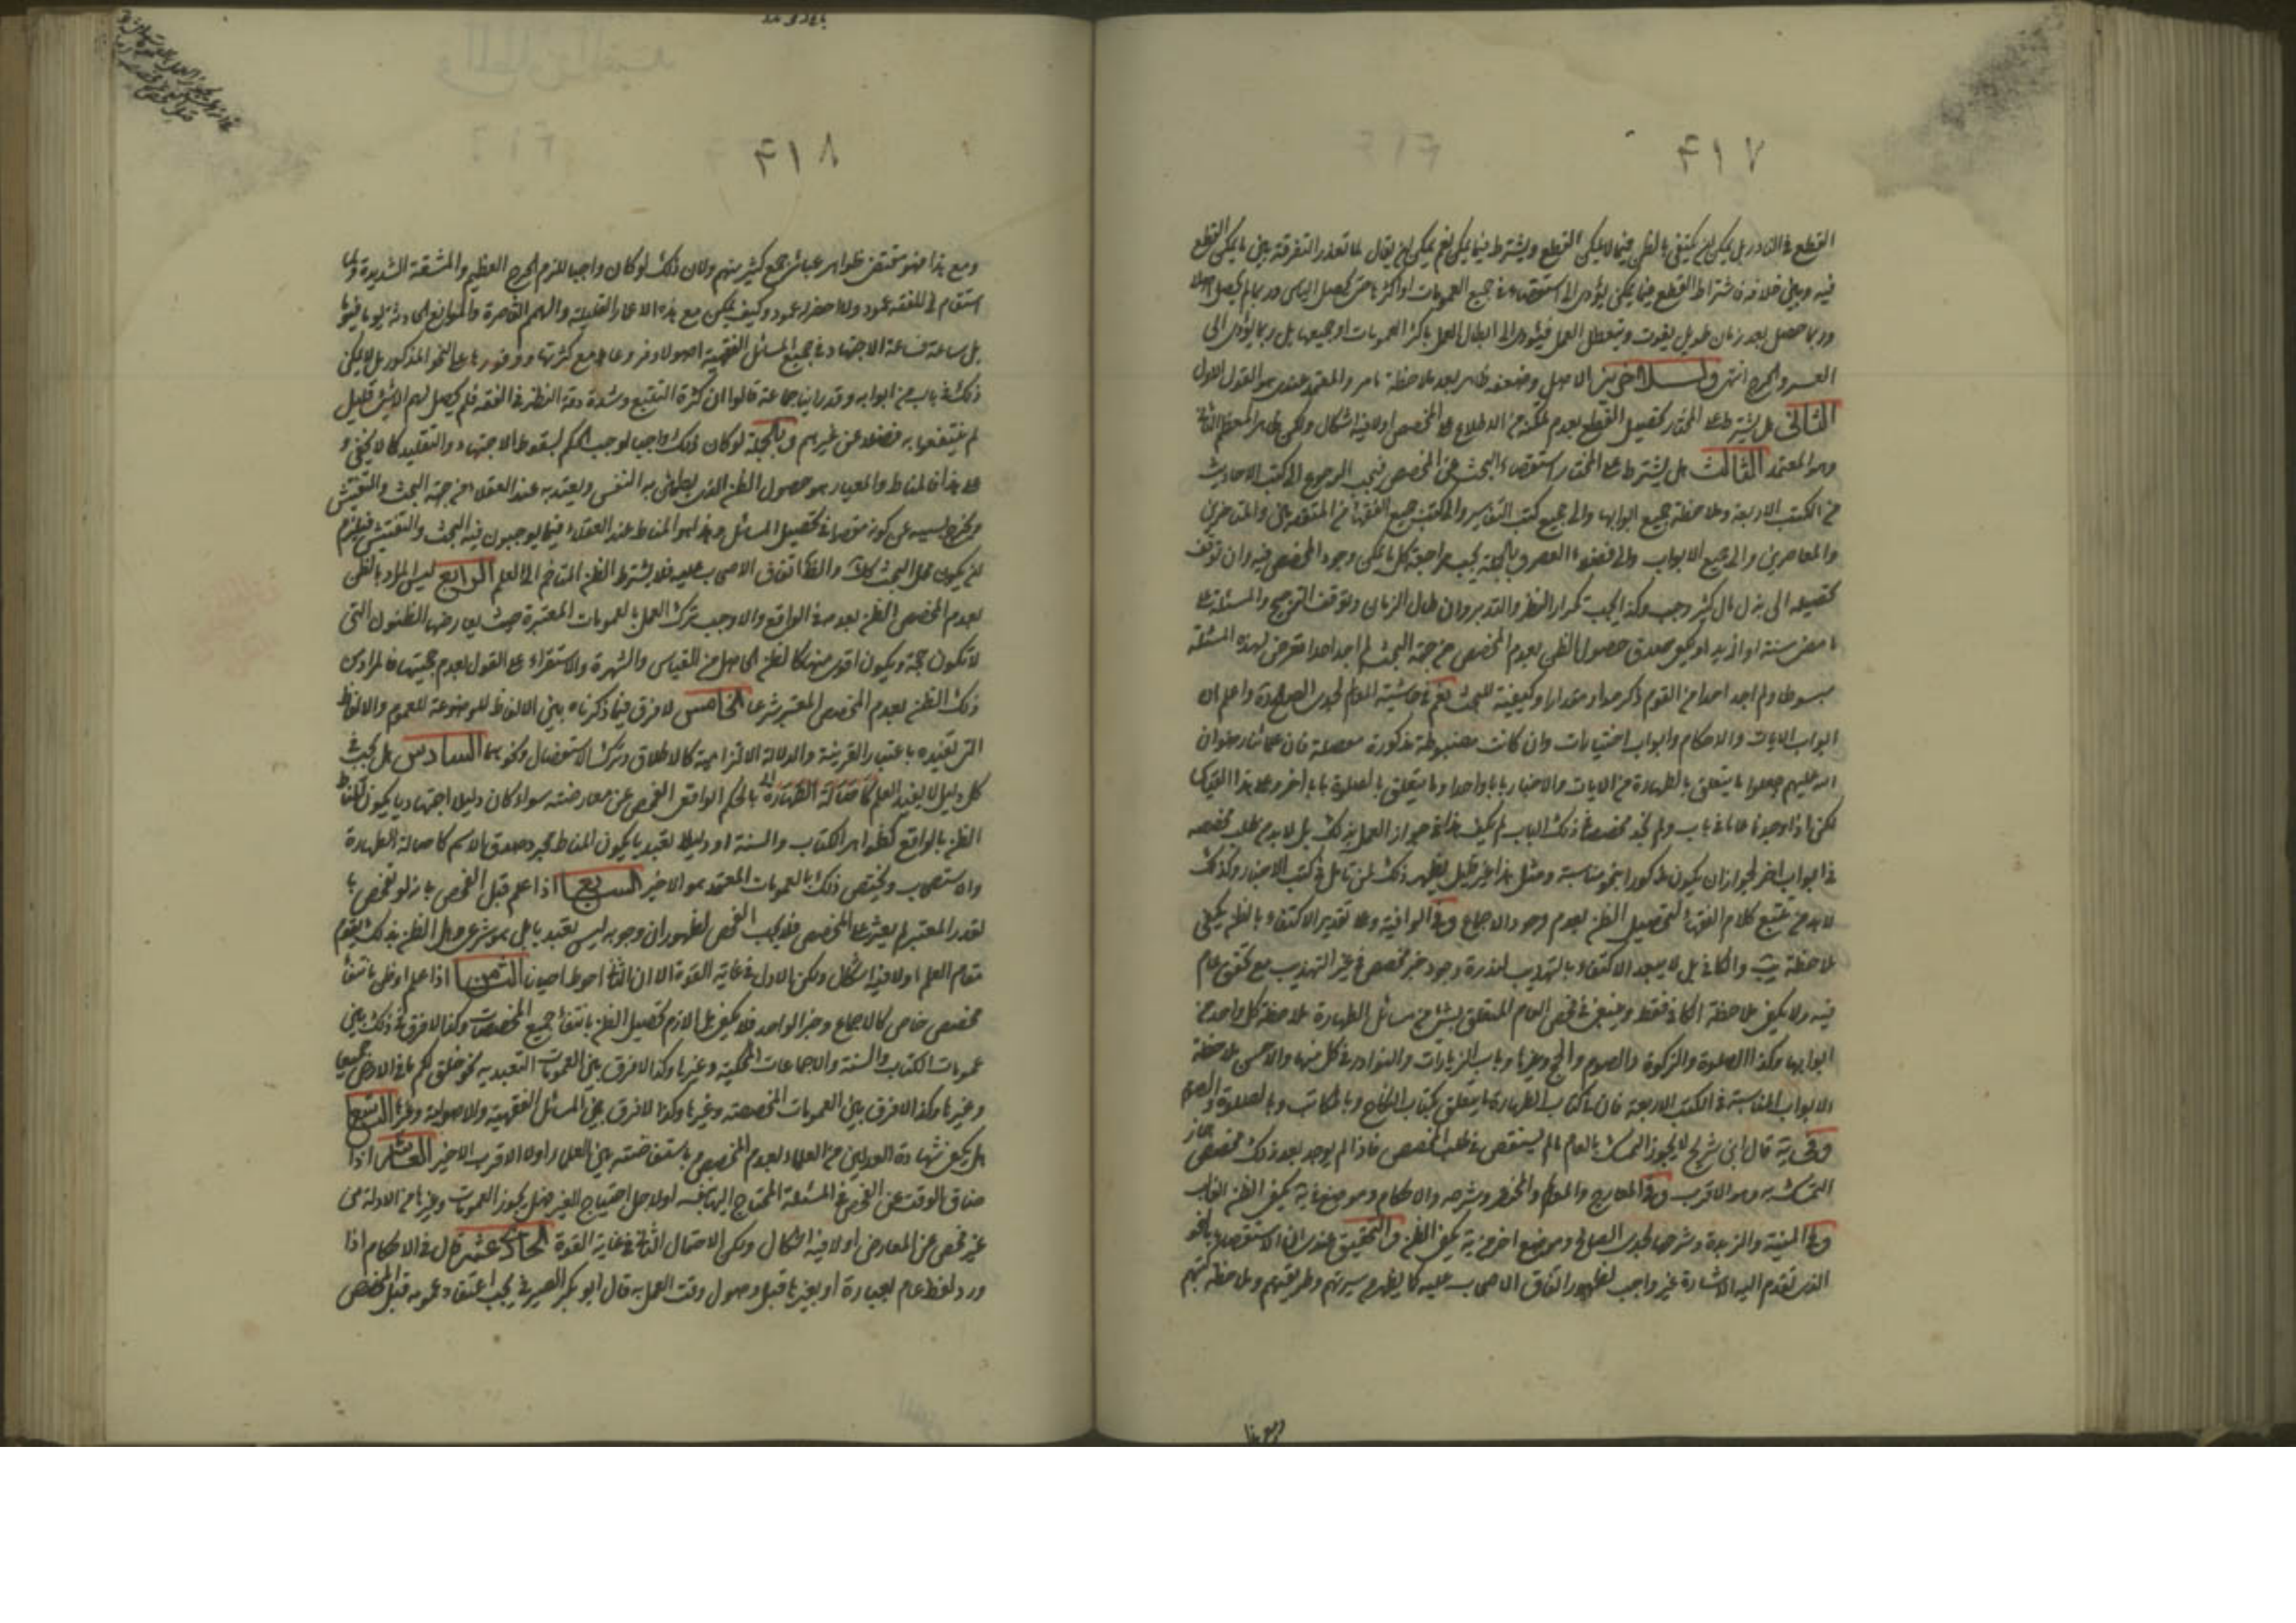 ٤١٧
القطع في النادر بل يمكن ان يكتفى بالظن فيما لا يمكن القطع ويشترط فيما يمكن نعم يمكن ان يقال لما تعذر التفرقة بين ما يمكن القطع
فيه وبين خلافه فاشتراط القطع فيما يمكن يؤدى الى استقصاء في جميع العمومات او اكثرها حتى يحصل الياس وربما لم يحصل اصلا
وربما حصل بعد زمان طويل يفوت ويتعطل العمل فيؤدى الى ابطال العمل باكثر العمومات او جميعها بل ربما يؤدى الى
العسر والحرج انتهى الاصل وضعفه ظاهر بعد ملاحظة ما مر والمعتمد عندى هو القول الاول
الثاني هل يشترط على المختار تحصيل القطع بعدم تمكنه من الاطلاع على المخصص اولا فيه اشكال ولكن ظاهر المعظم الثاني
وهو المعتمد الثالث هل يشترط على المختار استقصاء البحث عن المخصص فيجب الرجوع الى كتب الاحاديث
من الكتب الاربعة وملاحظة جميع ابوابها والى جميع كتب التفاسير والى كتب جميع الفقهاء من المتقدمين والمتاخرين
والمعاصرين والى جميع الابواب والى فضلاء العصر وبالجملة يجب مراجعة كل ما يمكن وجود المخصص فيه وان توقف
تحصيله الى بذل مال كثير وجب وكذا يجب تكرار النظر والتدبر وان طال الزمان وتوقف الترجيح والمسئلة على
مضى سنة او ازيد او يكفى صدق حصول الظن بعدم المخصص من جهة البحث لم اجد احدا تعرض لهذه المسئلة
مبسوطا ولم اجد احدا من القوم ذكر حدا ومقدارا وكيفية للبحث نعم في حاشية المعالم لجدى الصالح واعلم ان
ابواب الايات والاحكام وابواب اختيارات وان كانت مضبوطة مذكورة مفصلة فان علمائنا رضوان
الله عليهم جعلوا ما يتعلق بالطهارة من الايات والاخبار بابا واحدا وما يتعلق بالصلوة بابا اخر وعلى هذا القياس
لكن اذا وجدنا عاما في باب ولم نجد مخصصه في ذلك الباب لم يكف هذا في جواز العمل بذلك بل لابد من طلب مخصصه
في ابواب اخر لجواز ان يكون مذكورا بنحو مناسبة ومثل هذا غير قليل يظهر ذلك لمن تامل في كتب الاخبار وكذلك
لابد من تتبع كلام الفقهاء لتحصيل الظن بعدم وجود الاجماع وفي الوافية وعلى تقدير الاكتفاء بالظن يكفى
ملاحظة يب والكافى بل لا يبعد الاكتفاء بالتهذيب لندرة وجود خبر مخصص في غير التهذيب مع تحقق عام
فيه ولا يكفى ملاحظة الكافى فقط وينبغى في فحص العام المتعلق بشئ من مسائل الطهارة ملاحظة كل واحد من
ابوابها وكذا الصلوة والزكوة والصوم والحج وغيرها وباب الزيارات والنوادر في كل منها والاحسن ملاحظة
الابواب المناسبة في الكتب الاربعة فان في كتاب الطهارة ما يتعلق بكتاب النكاح وبالمكاتب وبالصلوة والصوم
وفى يه قال ابن شريح لا يجوز التمسك بالعام ما لم يستقص في طلب المخصص فاذا لم يوجد بعد ذلك مخصص جاز
التمسك به وهو الاقرب وفى المعارج والمعالم والمختصر وشرحه والاحكام وموضع من يه يكفى الظن الغالب
وفى المنية والزبدة وشرحها لجدى الصالح وموضع اخر من يه يكفى الظن والتحقيق عندى ان الاستقصاء بالنحو
الذى تقدم اليه الاشارة غير واجب لظهور اتفاق الاصحاب عليه كما يظهر من سيرتهم وطريقتهم وملاحظة كتبهم
ومع هذا
٤١٨
ومع هذا فهو مقتضى ظواهر عبائر جمع كثير منهم ولان ذلك لو كان واجبا للزم الحرج العظيم والمشقة الشديدة ولما
استقام للفقه عمود ولا اخضر له عود وكيف يمكن مع هذه الاعمار القليلة والهمم القاصرة والموانع الحادثة يوما فيوما
بل ساعة فساعة الاجتهاد في جميع المسائل الفقهية اصولا وفروعا مع كثرتها ووفورها على النحو المذكور بل لا يمكن
ذلك في باب من ابوابه وقد راينا جماعة قالوا ان كثرة التتبع وشدة دقة النظر في الفقه فلم يحصل لهم الا شئ قليل
لم ينتفعوا به فضلا عن غيرهم وبالجملة لو كان ذلك واجبا لوجب الحكم بسقوط الاجتهاد والتقليد كما لا يخفى و
على هذا فالمناط والمعيار هو حصول الظن الذى يطمئن به النفس ويعتد به عند العقلاء من جهة البحث والتفتيش
ويخرج بسببه عن كونه مقصرا في تحصيل المسائل وهذا هو المناط عند العقلاء فيما يوجبون فيه البحث والتفتيش فيلزم
ان يكون محل البحث كذلك والظاهر اتفاق الاصحاب عليه فلا يشترط الظن المتاخم الى العلم الرابع ليس المراد بالظن
بعدم المخصص الظن بعدمه في الواقع والا وجب ترك العمل بالعمومات المعتبرة حيث يعارضها الظنون التى
لا تكون حجة ويكون اقوى منها كالظن الحاصل من القياس والشهرة والاستقراء على القول بعدم حجيتها فالمراد من
ذلك الظن بعدم المخصص المعتبر شرعا الخامس لا فرق فيما ذكرناه بين الالفاظ الموضوعة للعموم والالفاظ
التى تفيده باعتبار القرينة والدلالة الالتزامية كالاطلاق وترك الاستفصال ونحوهما السادس هل يجب في
كل دليل لا يفيد العلم كاصالة الطهارة بالحكم الواقعى الفحص عن معارضته سواء كان دليلا اجتهاديا يكون المناط
الظن بالواقع كظواهر الكتاب والسنة او دليلا تعبديا يكون المناط مجرد صدق الاسم كاصالة الطهارة
والاستصحاب ويختص ذلك بالعمومات المعتمد هو الاخير السابع اذا علم قبل الفحص بانه لو تفحص بما
لقدر المعتبر لم يعثر على المخصص فلا يجب الفحص لظهور ان وجوبه ليس تعبديا بل هو شرعى وهل الظن بذلك يقوم
مقام العلم اولا فيه اشكال ولكن الاول في غاية القوة الا ان الثاني احوط احيانا الثامن اذا علم او ظن بانتفاء
مخصص خاص كالاجماع وخبر الواحد فلا يكفى بل اللازم تحصيل الظن بانتفاء جميع المخصصات وكذا لا فرق في ذلك بين
عمومات الكتاب والسنة والاجماعات المحكية وغيرها وكذا لا فرق بين العمومات التعبدية نحو خلق لكم ما في الارض جميعا
وغيرها وكذا لا فرق بين العمومات المخصصة وغيرها وكذا لا فرق بين المسائل الفقهية والاصولية وغيرها التاسع
هل يكفى شهادة العدلين من العلماء بعدم المخصص باستفاضته بين العلماء اولا الاقرب الاخير العاشر اذا
ضاق الوقت عن الفحص في المسئلة المحتاج اليها لنفسه او لاجل احتياج الغير فهل يجوز العمومات وغيرها من الادلة من
غير فحص عن المعارض اولا فيه اشكال ولكن الاحتمال الثاني في غاية القوة الحادى عشر قال في الاحكام اذا
ورد لفظ عام بعبادة او بغيرها قبل وصول وقت العمل به قال ابو بكر الصيرفى يجب اعتقاد عمومه قبل المخصص